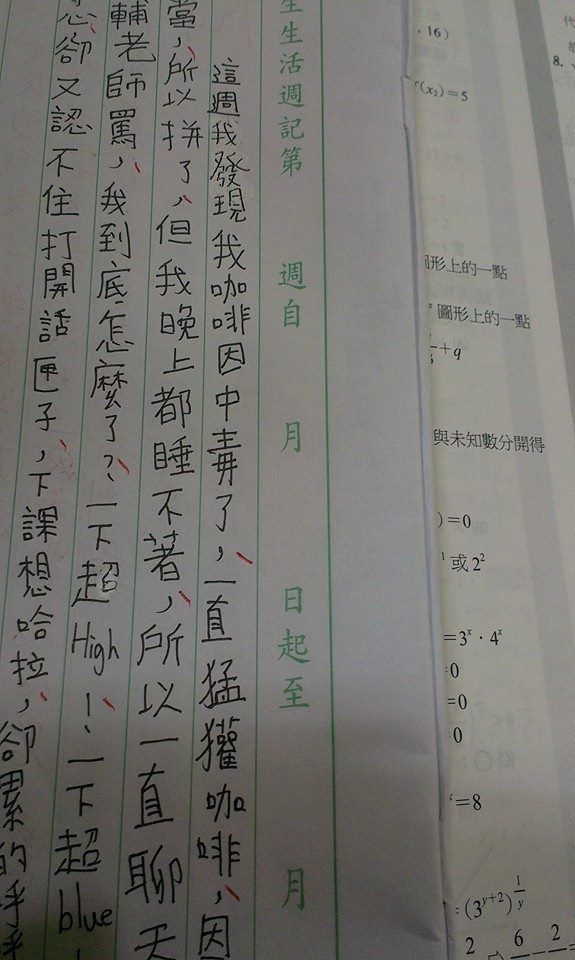 生活週記第 週自 月 日起至 月
這週我發現我咖啡因中毒了，一直猛獾咖啡，因
當，所以拼了，但我晚上都睡不著，所以一直聊天
輔老師罵，我到底怎麼了？一下超High！一下超blue
卻又認不住打開話匣子，下課想哈拉，卻累的呼
16)
(x₂)=5
8.
圖形上的一點
圖形上的一點
+q
與未知數分開得
)=0
或 2²
=3ˣ·4ˣ
=0
=0
0
=8
(3^{y+2})^{1/y}
2 6 2